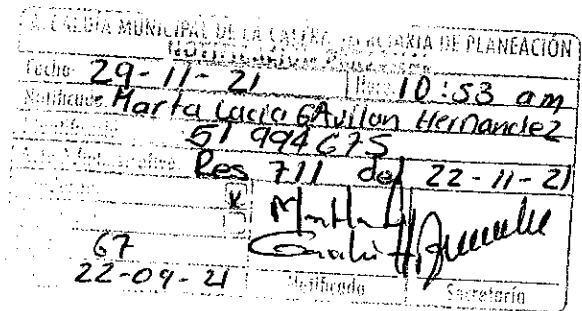 ALCALDIA MUNICIPAL DE LA CALERA SECRETARIA DE PLANEACIÓN
Fecha 29-11-21 Hora 10:53 am
Notificado Marta Lucia GAvilan Hernandez
51 994 675
Res 711 del 22-11-21
X
67
22-09-21
Notificado Secretaría